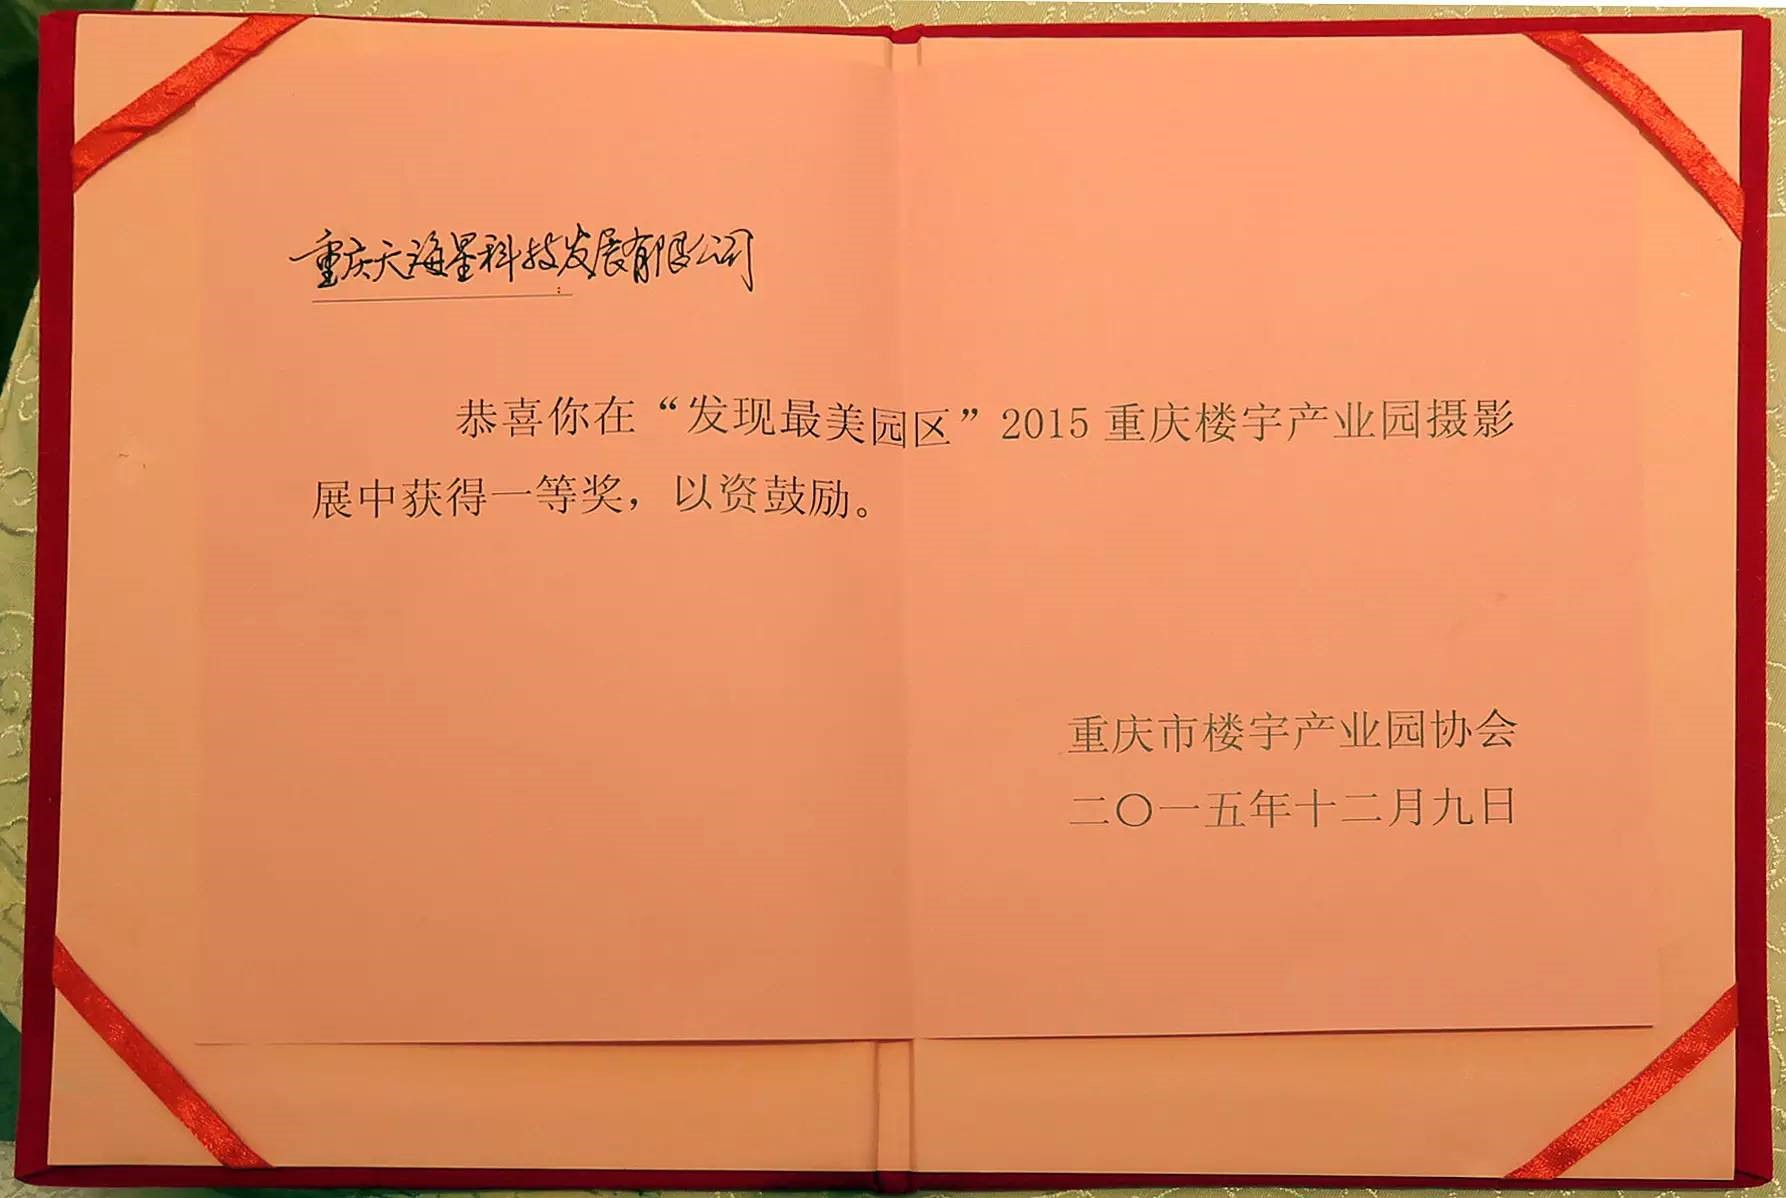 重庆天海星科技发展有限公司
:
恭喜你在“发现最美园区”2015重庆楼宇产业园摄影
展中获得一等奖，以资鼓励。
重庆市楼宇产业园协会
二〇一五年十二月九日